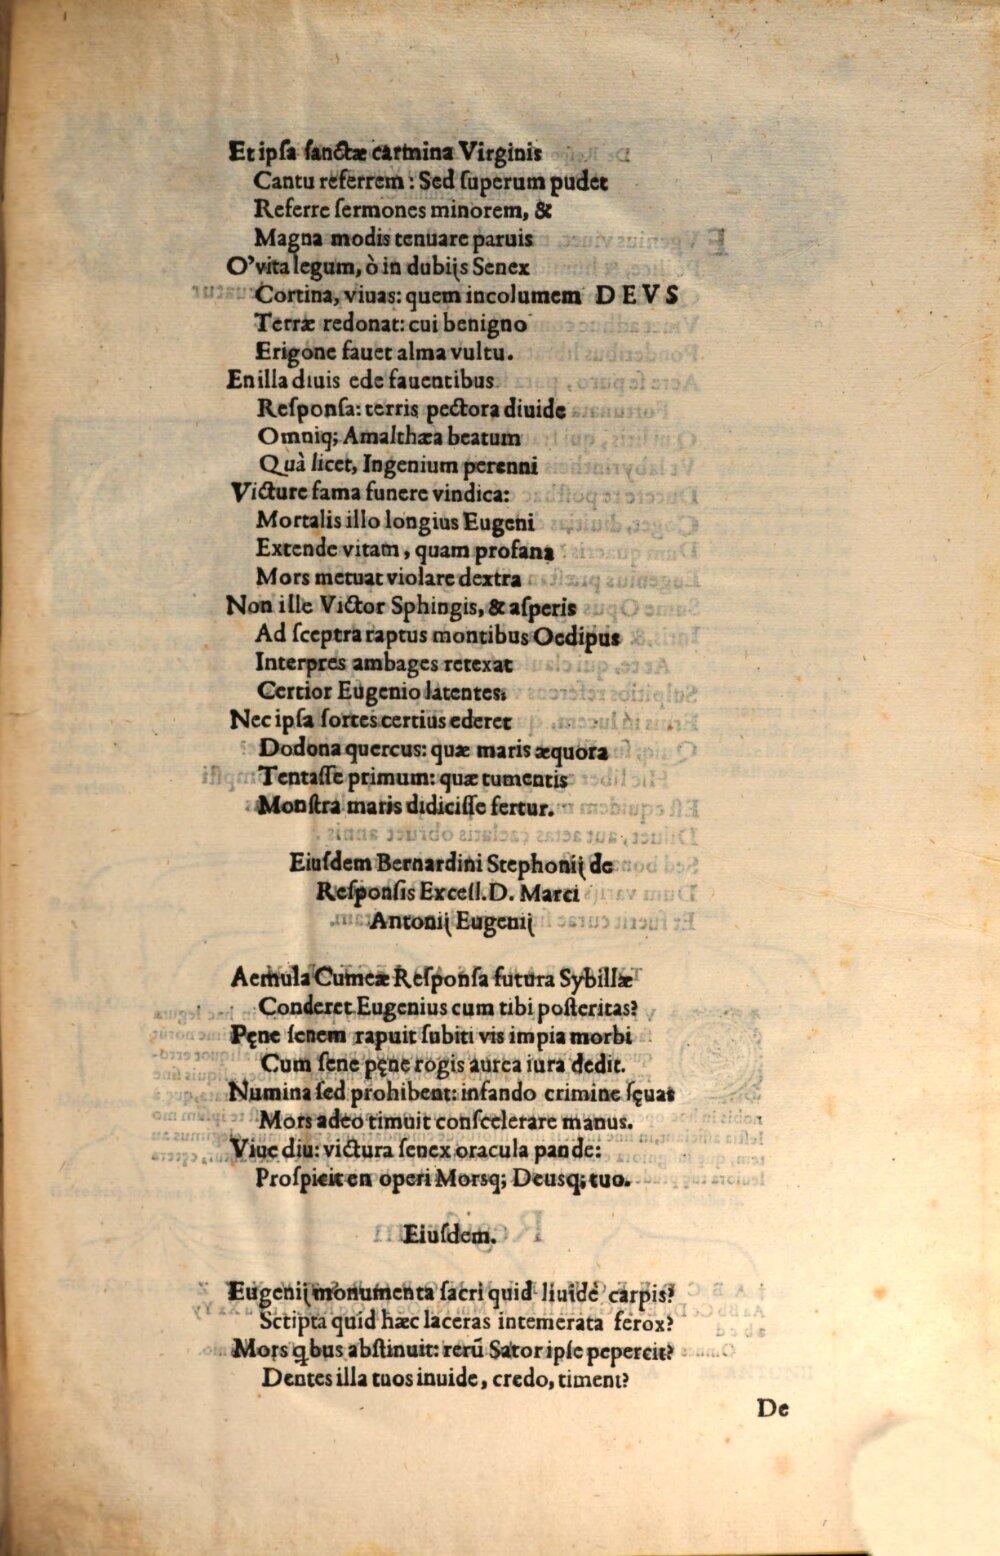 Et ipsa sanctæ carmina Virginis
Cantu referrem: Sed superum pudet
Referre sermones minorem, &
Magna modis tenuare paruis
O'vita legum, ò in dubijs Senex
Cortina, viuas: quem incolumem DEVS
Terræ redonat: cui benigno
Erigone fauet alma vultu.
En illa diuis ede fauentibus
Responsa: terris pectora diuide
Omniq; Amalthæa beatum
Quà licet, Ingenium perenni
Victure fama funere vindica:
Mortalis illo longius Eugeni
Extende vitam, quam profana
Mors metuat violare dextra
Non ille Victor Sphingis, & asperis
Ad sceptra raptus montibus Oedipus
Interpres ambages retexat
Certior Eugenio latentes:
Nec ipsa sortes certius ederet
Dodona quercus: quæ maris æquora
Tentasse primum: quæ tumentis
Monstra maris didicisse fertur.
Eiusdem Bernardini Stephonij de
Responsis Excell. D. Marci
Antonij Eugenij
Aemula Cumeæ Responsa futura Sybillæ
Conderet Eugenius cum tibi posteritas?
Pęne senem rapuit subiti vis impia morbi
Cum sene pęne rogis aurea iura dedit.
Numina sed prohibent: infando crimine sęuas
Mors adeo timuit conscelerare manus.
Viue diu: victura senex oracula pande:
Prospicit en operi Morsq; Deusq; tuo.
Eiusdem.
Eugenij monumenta sacri quid liuidè carpis?
Sctipta quid hæc laceras intemerata ferox?
Mors qbus abstinuit: rerũ Sator ipse pepercit?
Dentes illa tuos inuide, credo, timent?
De